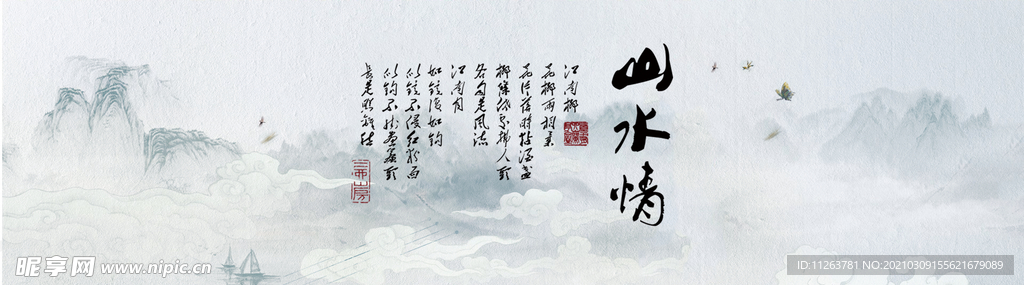 山水情
江南柳
花柳两相柔
花片落时黏酒盏
柳条低处拂人头
各自是风流
江南月
如镜复如钩
似镜不侵红粉面
似钩不挂画帘头
长是照离愁
昵享网 www.nipic.cn
ID:11263781 NO:20210309155621679089